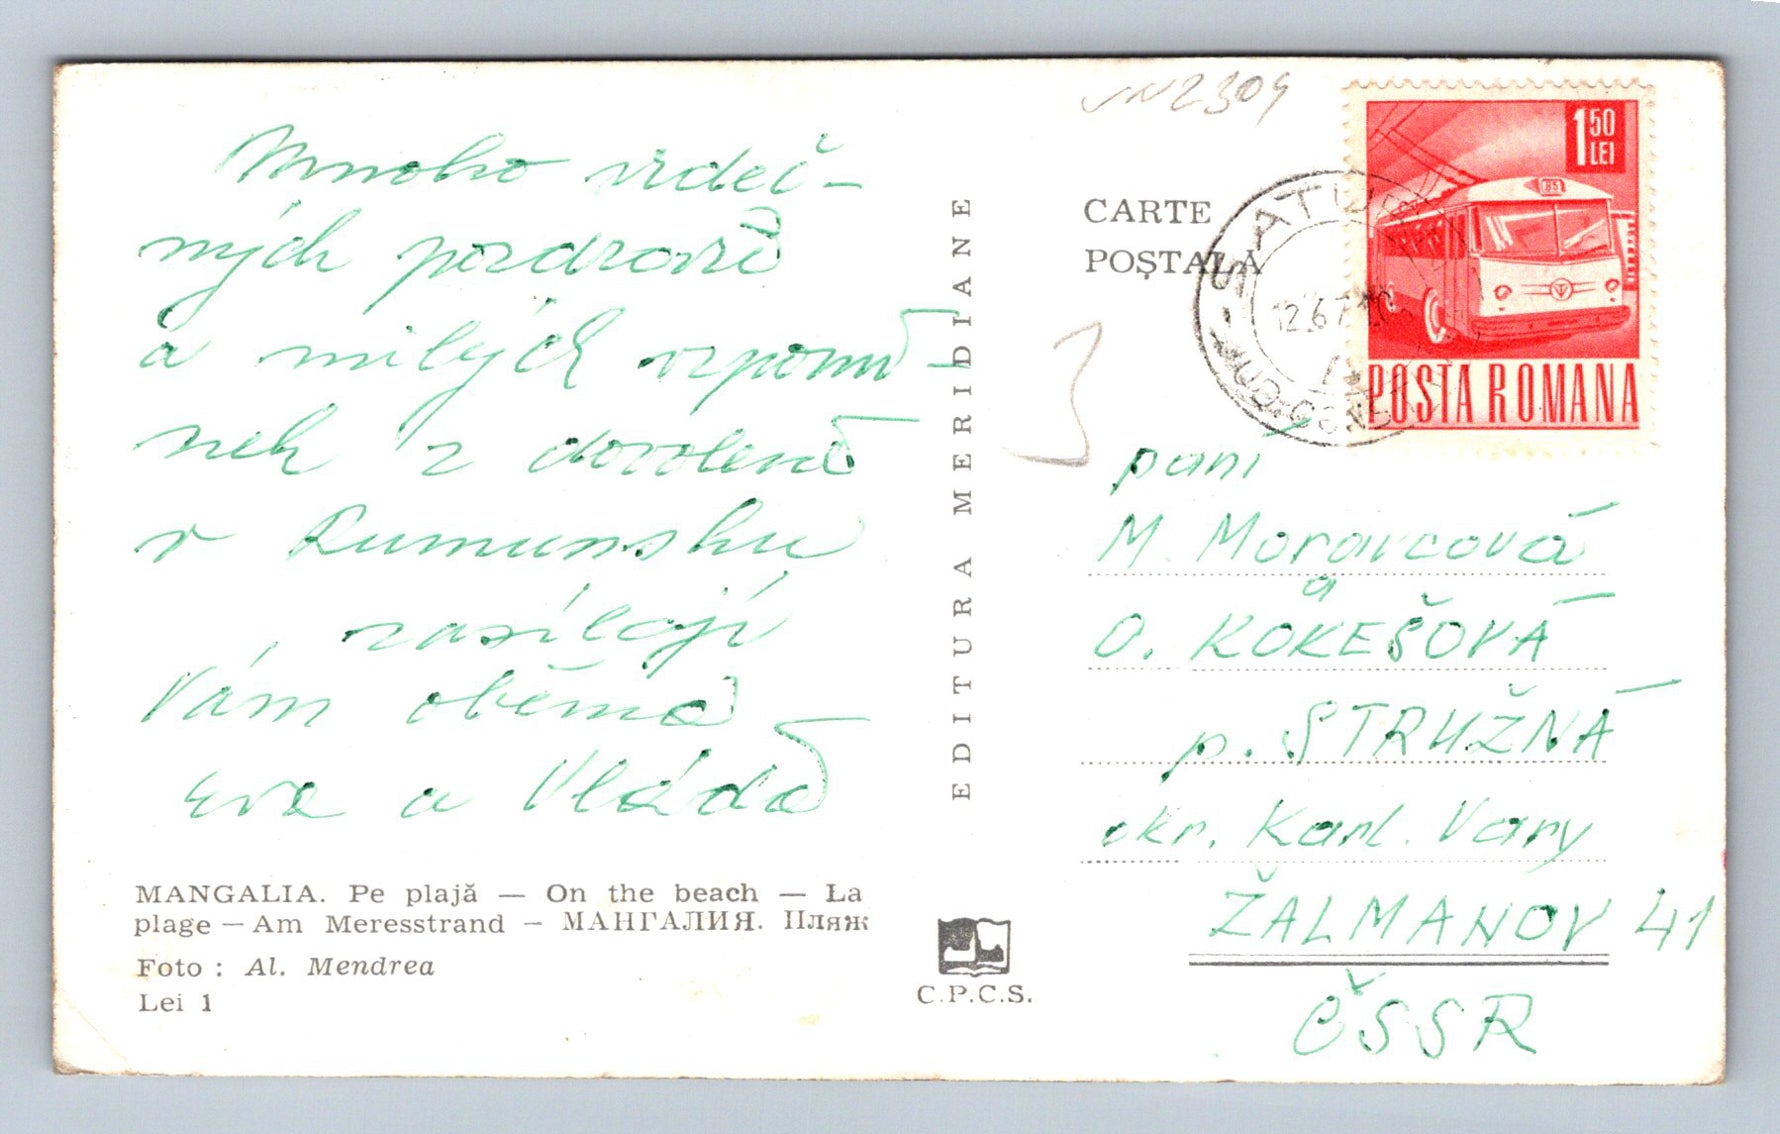 Mnoho srdeč-
ných pozdravů
a milých vzpomí-
nek z dovolené
v Rumunsku
zasílají
Vám oběma
Eva a Vláďa
MANGALIA. Pe plajă — On the beach — La
plage — Am Meresstrand — МАНГАЛИЯ. Пляж
Foto : Al. Mendrea
Lei 1
EDITURA MERIDIANE
C.P.C.S.
CARTE
POŞTALĂ
1 50
LEI
POSTA ROMANA
paní
M. Moravcová
a
O. KOKEŠOVÁ
p. STRUŽNÁ
okr. Karl. Vary
ŽALMANOV 41
ČSSR